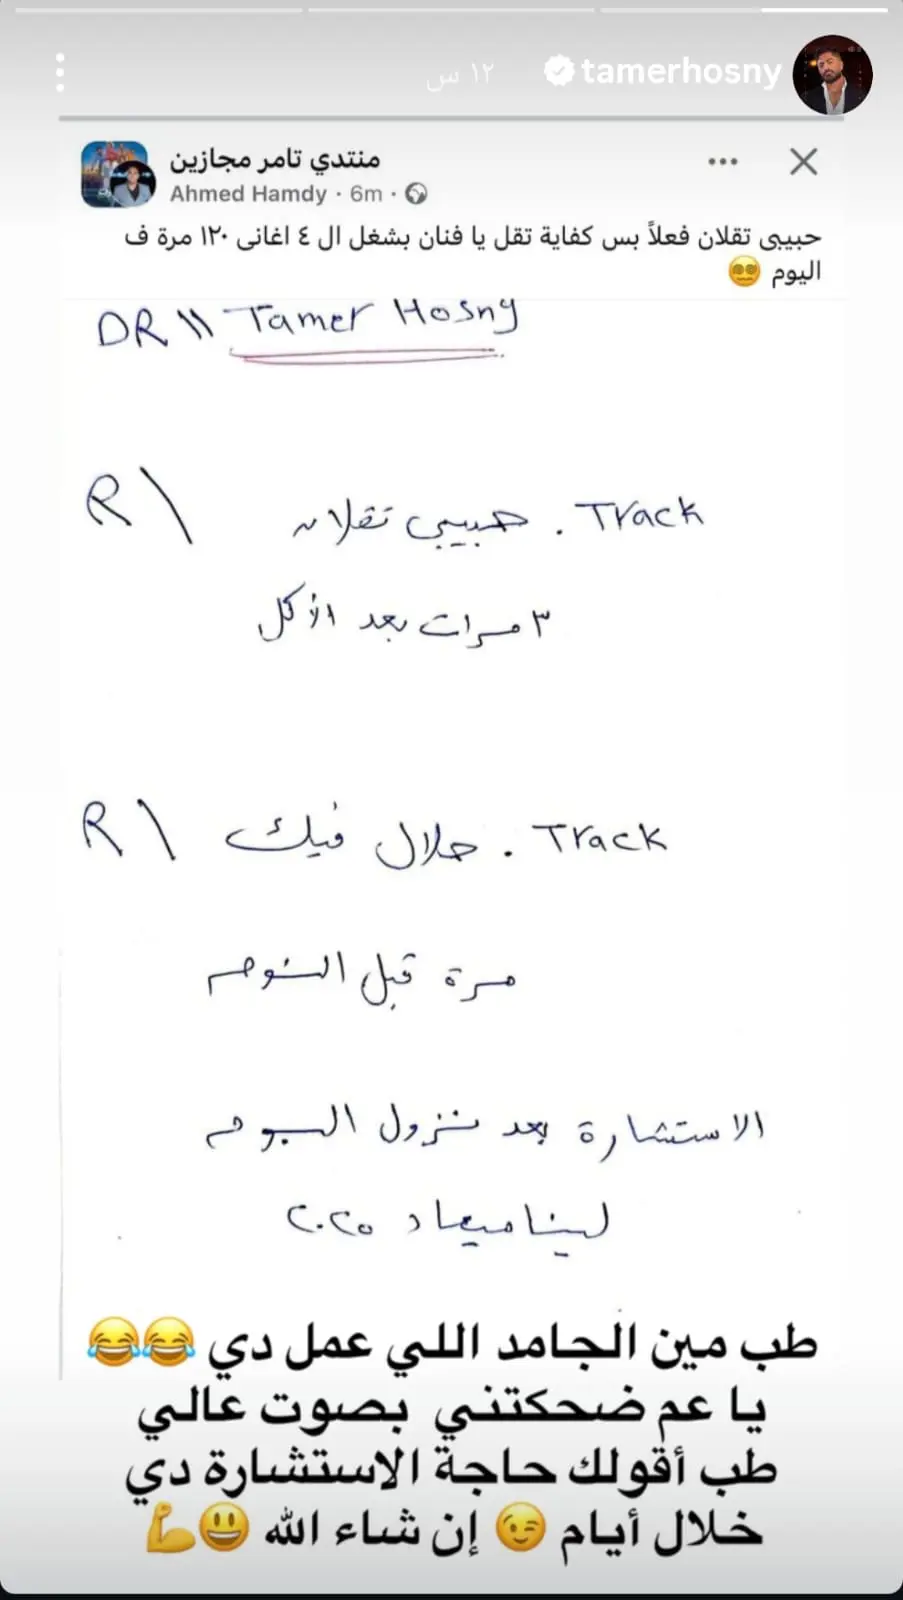 tamerhosny ١٢ س
منتدي تامر مجازين
Ahmed Hamdy · 6m ·
حبيبى تقلان فعلاً بس كفاية تقل يا فنان بشغل ال ٤ اغانى ١٢٠ مرة ف
اليوم 😵‍💫
DR \\ Tamer Hosny
R \ Track . حبيبي تقلان
٣ مرات بعد الأكل
R \ Track . حلال فيك
مرة قبل النوم
الاستشارة بعد نزول البوم
لينا ميعاد ٢٠٢٥
طب مين الجامد اللي عمل دي 😂😂
يا عم ضحكتني بصوت عالي
طب أقولك حاجة الاستشارة دي
خلال أيام 😉 إن شاء الله 😃💪